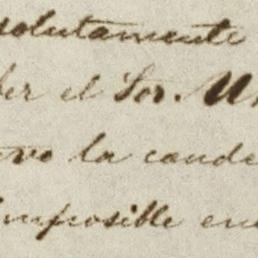 solutamente
ber el Sor. U
vo la conde
imposible en